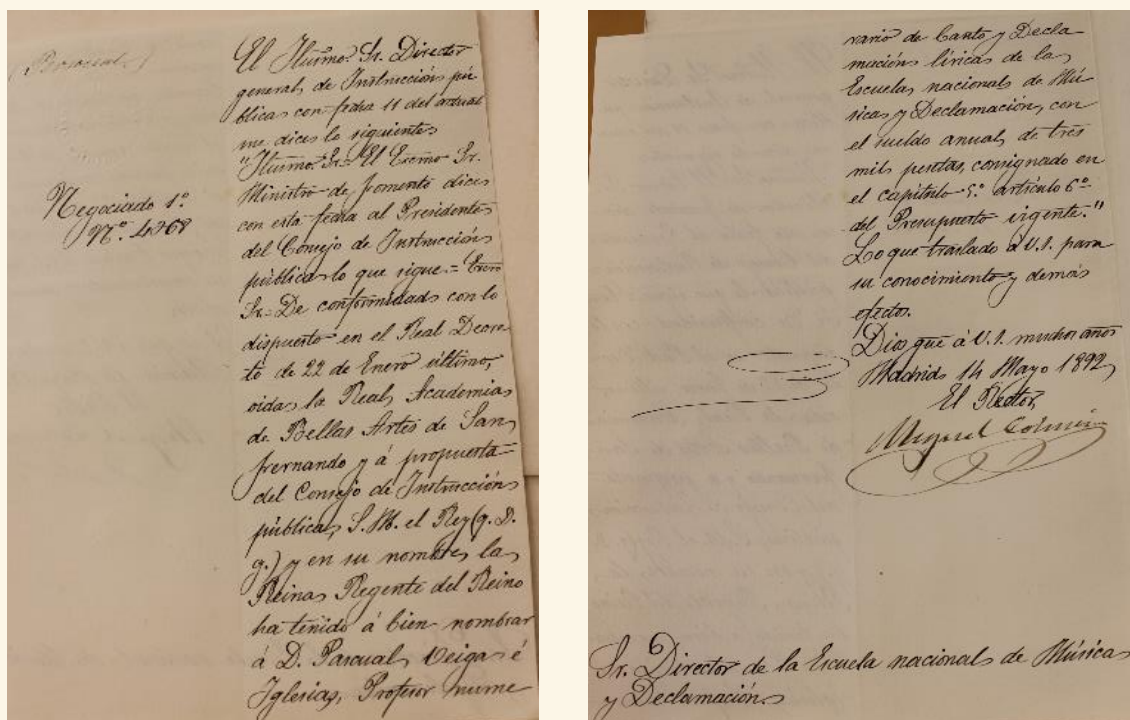 (Personal)
Negociado 1º
Nº. 4268
El Iltmo. Sr. Director
general de Instrucción pú-
blica con fecha 11 del actual
me dice lo siguiente
"Iltmo. Sr.= El Excmo Sr.
Ministro de Fomento dice
con esta fecha al Presidente
del Consejo de Instrucción
pública lo que sigue.= Excmo
Sr.= De conformidad con lo
dispuesto en el Real Decre-
to de 22 de Enero último,
oida la Real Academia
de Bellas Artes de San
Fernando y á propuesta
del Consejo de Instrucción
pública, S. M. el Rey (q. D.
g.) y en su nombre la
Reina Regente del Reino
ha tenido á bien nombrar
á D. Pascual Veiga é
Iglesias, Profesor nume
rario de Canto y Decla-
mación lírica de la
Escuela nacional de Mú-
sica y Declamación, con
el sueldo anual de tres
mil pesetas, consignado en
el capítulo 5.º artículo 6º
del Presupuesto vigente."
Lo que traslado á V.I. para
su conocimiento y demás
efectos.
Dios gue á V.I. muchos años
Madrid 14 Mayo 1892,
El Rector,
Miguel Colmeiro
Sr. Director de la Escuela nacional de Música
y Declamación.